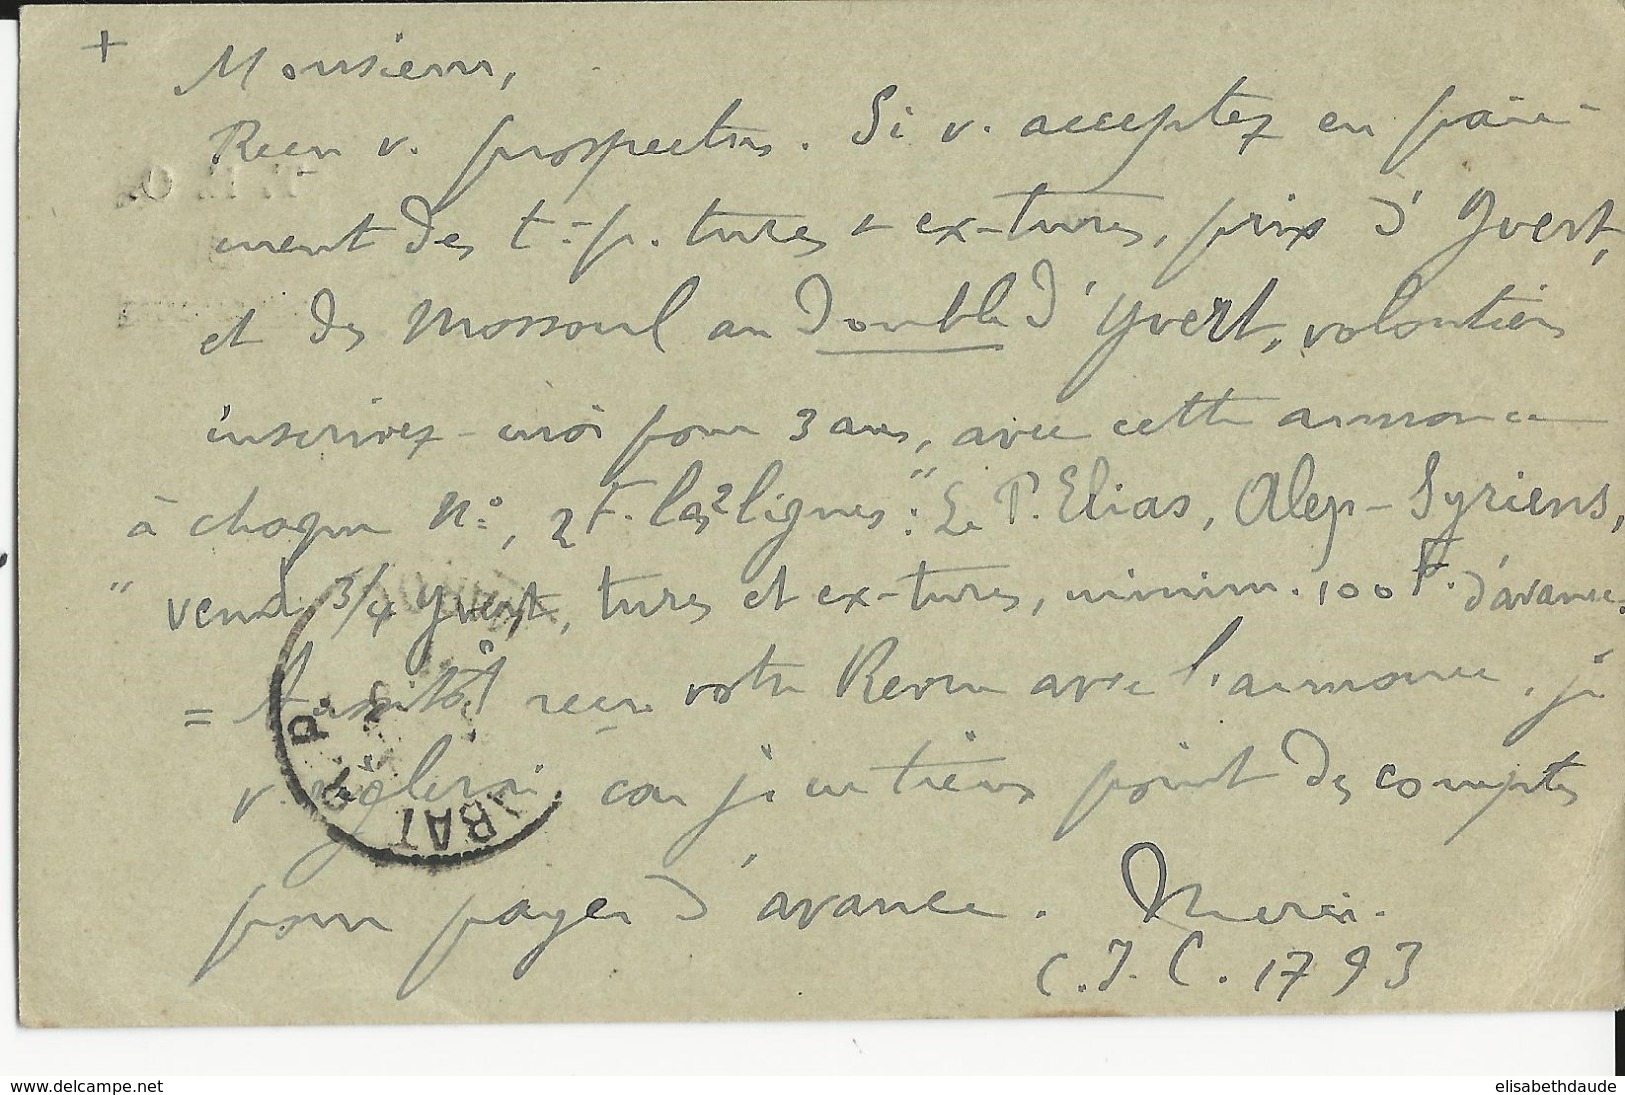 + Monsieur,
Reçu v. prospectus. Si v. acceptez en paie-
ment des t.-p. turcs & ex-turcs, prix d'Yvert,
et des Mossoul au double d'Yvert, volontiers
inscrivez-moi pour 3 ans, avec cette annonce
à chaque n°, 2 F. les 2 lignes: "Le P. Elias, Alep-Syriens,
" vend 3/4 Yvert, turcs et ex-turcs, minim. 100 F. d'avance.
= Aussitôt reçu votre Revue avec l'annonce, je
v. règlerai car je ne tiens point des comptes
pour payer d'avance. Merci.
C.J.C. 1793
RABAT R.P.
www.delcampe.net
elisabethdaude